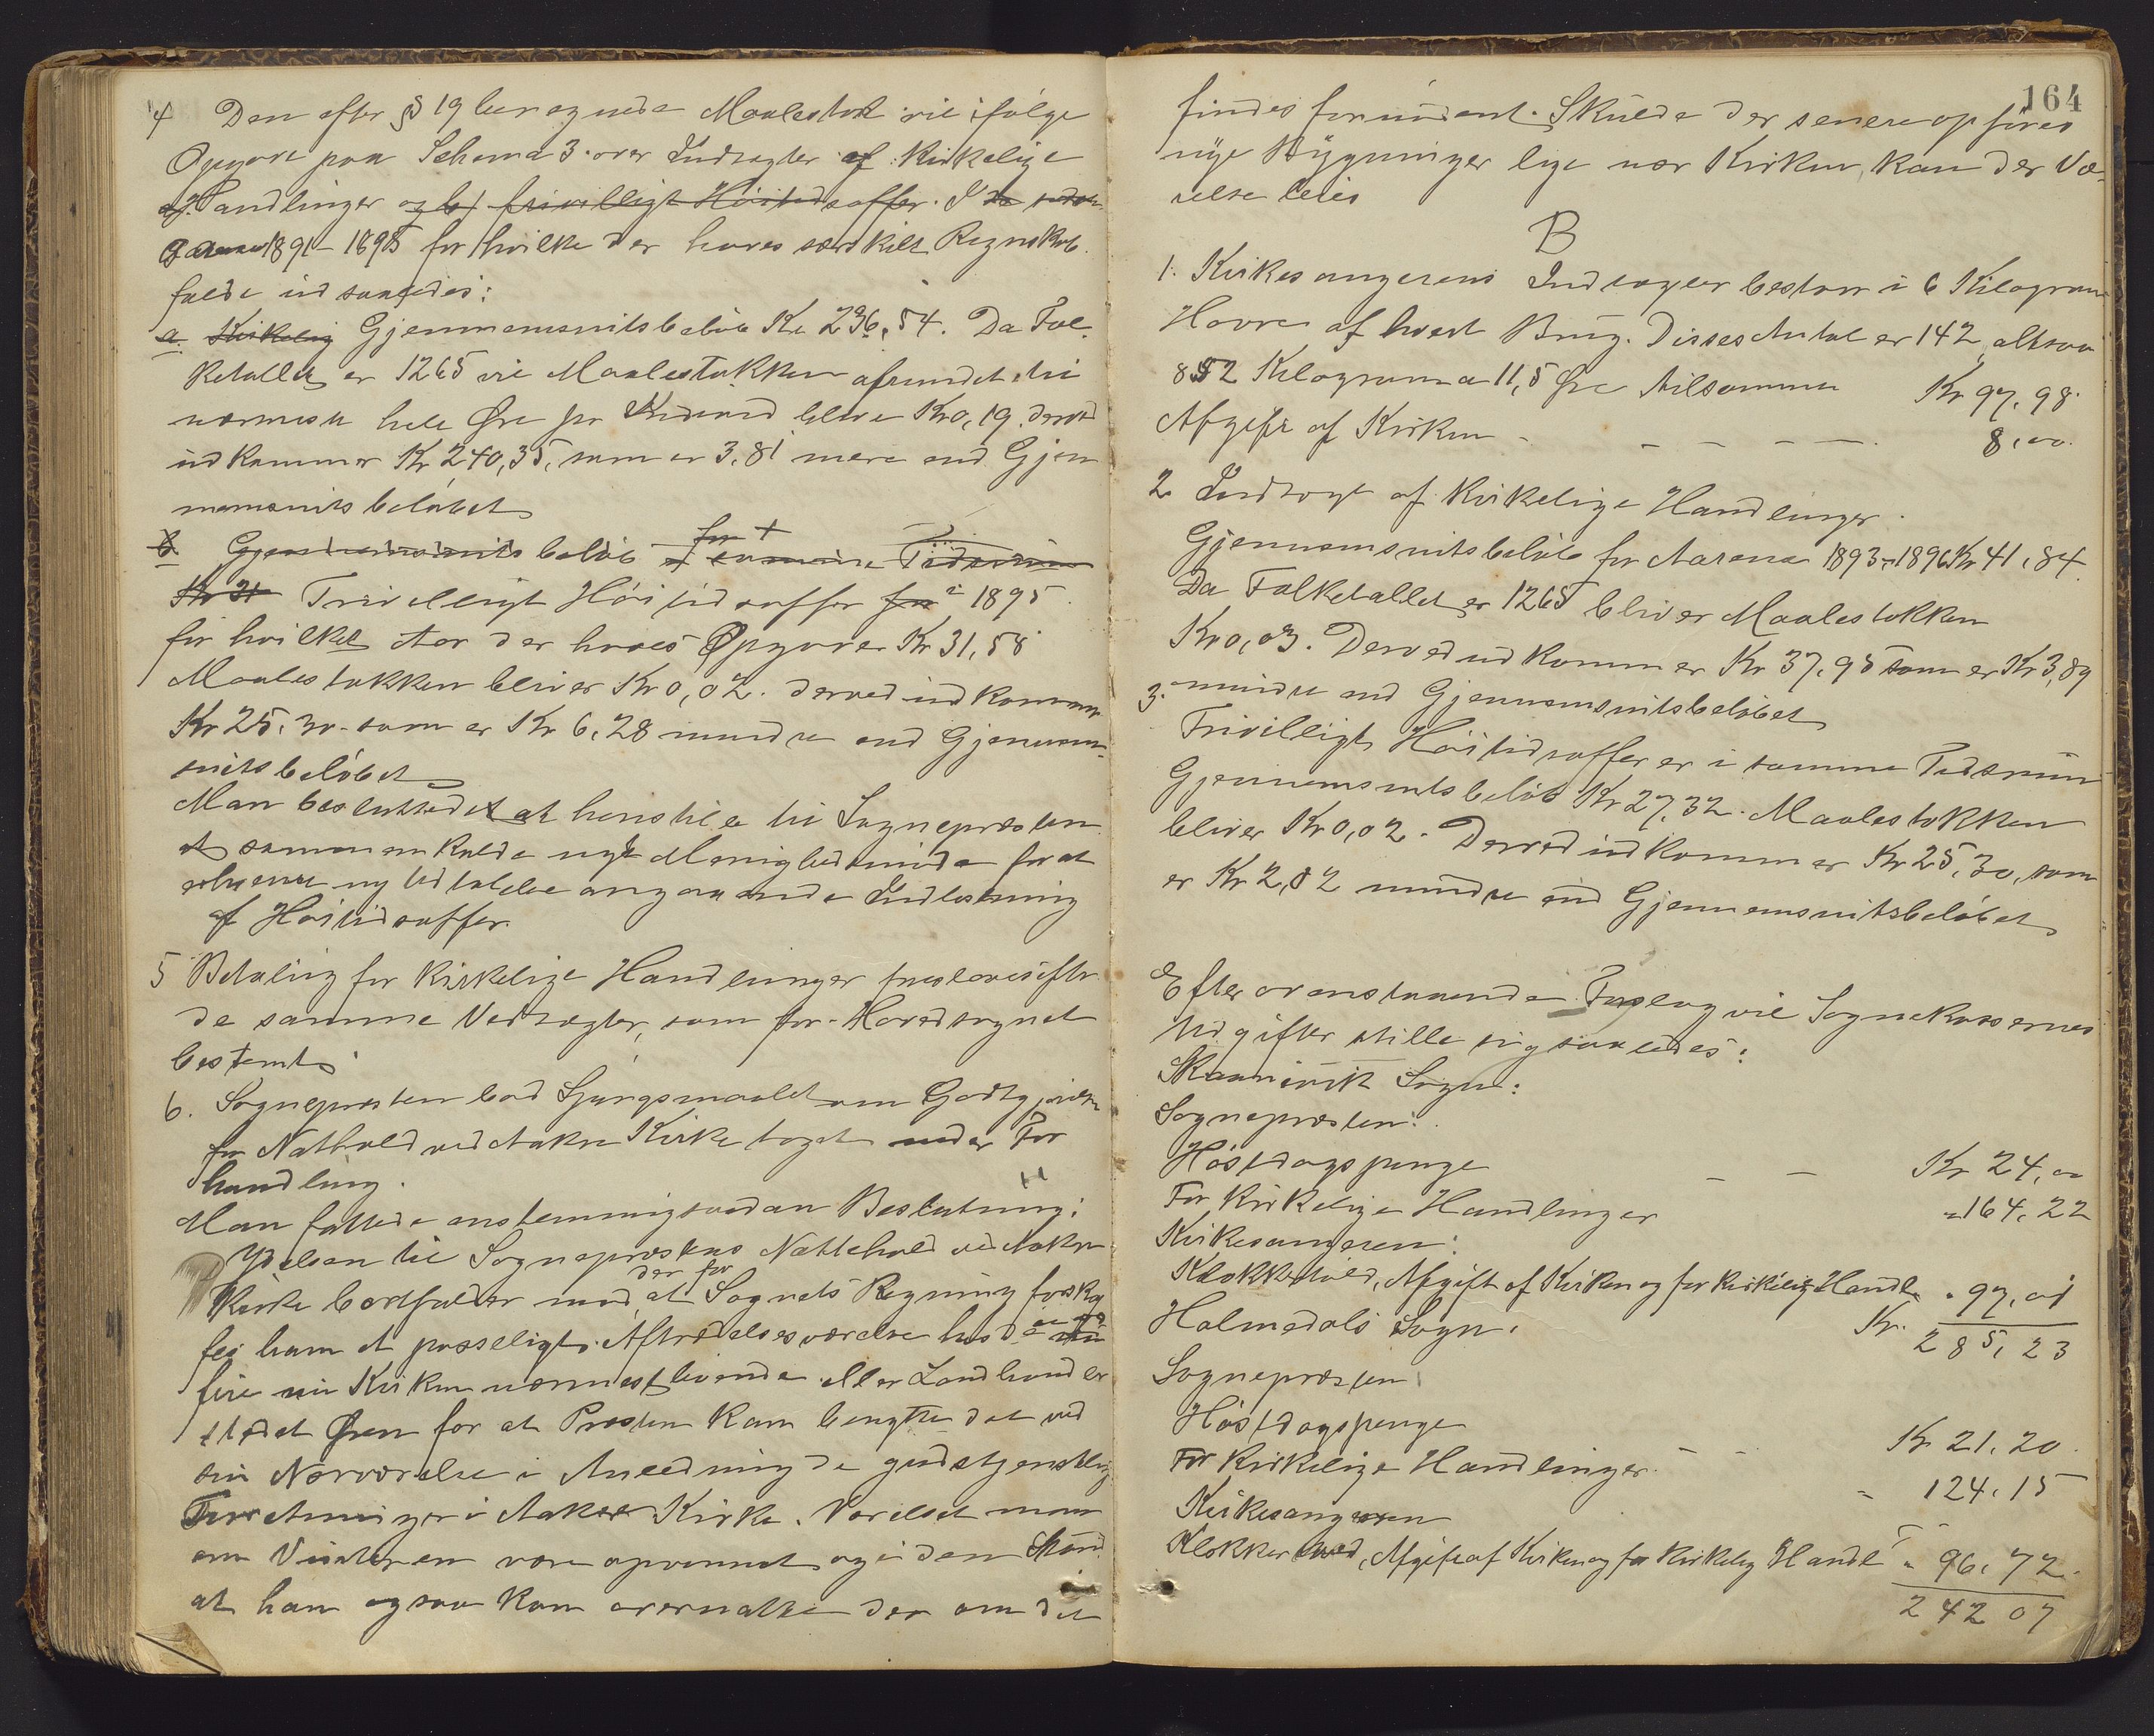 4 Den efter § 19 beregnede Maalestok vil ifølge
Opgave paa Schema 3 over Indtægter af Kirkelige
Handlinger og b) frivilligt Høitidsoffer. I
Aarene 1891-1895 for hvilke der haves særskilt Regnskab
falde ud saaledes:
a. Kirkelig Gjennemsnitsbeløb Kr 236,54. Da Fol-
ketallet er 1265 vil Maalestokken afrundet til
nærmeste hele Øre pr Individ blive Kr 0,19. derved
indkommer Kr 240,35, som er 3,81 mere end Gjen
nemsnitsbeløbet
b. Gjennemsnitsbeløb for samme Tidsrum
Kr 31 Frivilligt Høitidsoffer for i 1895
for hvilket Aar der haves Opgave Kr 31,58
Maalestokken bliver Kr 0,02. derved indkommer
Kr 25,30 som er Kr 6,28 mindre end Gjennem-
snitsbeløbet
Man besluttede at henstille til Sognepræsten
at sammenkalde nyt Menighedsmøde for at
erhverve ny Udtalelse angaaende Indløsning
af Høitidsoffer.
5 Betaling for Kirkelige Handlinger foreslaaes efter
de samme Vedtægter, som for Hovedsognet
bestemt
6. Sognepræsten lod Spørgsmaalet om Godtgjørelse
for Nathold ved Aakre Kirke toges under For
handling.
Man fattede enstemmig saadan Beslutning:
Ydelsen til Sognepræstens Nattehold ved Aakre
Kirke bortfalder mod at der for Sognets Regning forskaf
fes ham et passeligt Aftrædelsesværelse hos de
fire Kirken nærmest boende eller Landhandler
stedet Øren for at Præsten kan benytte det ved
sin Nærværelse i Anledning de gudstjenstlige
Forretninger i Aakre Kirke. Værelset maa
om Vinteren være opvarmet og i den Stand
at han ogsaa kan overnatte der om det
164
findes fornødent. Skulde der senere opføres
nye Bygninger lige ved Kirken, kan der Væ-
relse leies
B
1. Kirkesangerens Indtægter bestaar i 6 Kilogram
Havre af hvert Brug. Disses Antal er 142, altsaa
852 Kilogram a 11,5 Øre tilsammen Kr 97,98
Afgift af Kirken - - - - - 8,00.
2 Indtægt af Kirkelige Handlinger.
Gjennemsnitsbeløb for Aarene 1893-1896 Kr 41,84
Da Folketallet er 1265 bliver Maalestokken
Kr 0,03. Derved indkommer Kr 37,95 som er Kr 3,89
mindre end Gjennemsnitsbeløbet
3. Frivilligt Høitidsoffer er i samme Tidsrum
Gjennemsnitsbeløb Kr 27,32. Maalestokken
bliver Kr 0,02. Derved indkommer Kr 25,30, som
er Kr 2,02 mindre end Gjennemsnitsbeløbet
Efter ovenstaaende Forslag vil Sognekassernes
Udgifter stille sig saaledes:
Skaanevik Sogn:
Sognepræsten:
Høstdagspenge - - Kr 24,00
For Kirkelige Handlinger " 164,22
Kirkesangeren:
Klokkertold, Afgift af Kirken og for Kirkelig Handl. " 97,01
Kr. 285,23
Holmedals Sogn.
Sognepræsten
Høstdagspenge Kr 21,20
For Kirkelige Handlinger. " 124,15
Kirkesangeren
Klokkertold, Afgift af Kirken og for Kirkelig Handl " 96,72
242 07